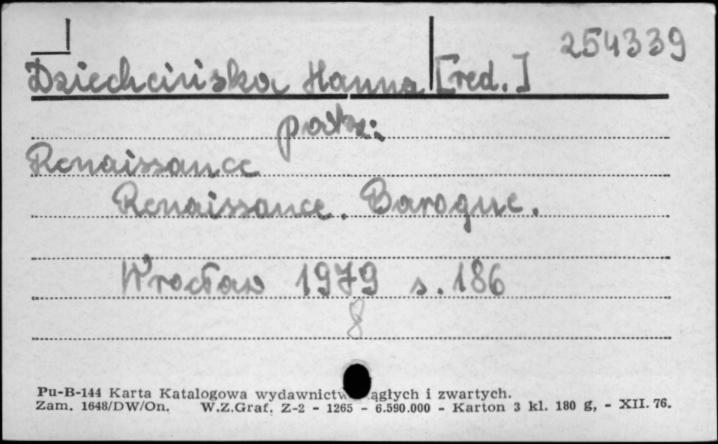 254339
Dziechcińska Hanna [red.]
patrz:
Renaissance
Renaissance. Baroque.
Wrocław 1979 s. 186
8
Pu-B-144 Karta Katalogowa wydawnictw ągłych i zwartych.
Zam. 1648/DW/On. W.Z.Graf. Z-2 - 1265 - 6.590.000 - Karton 3 kl. 180 g, - XII. 76.